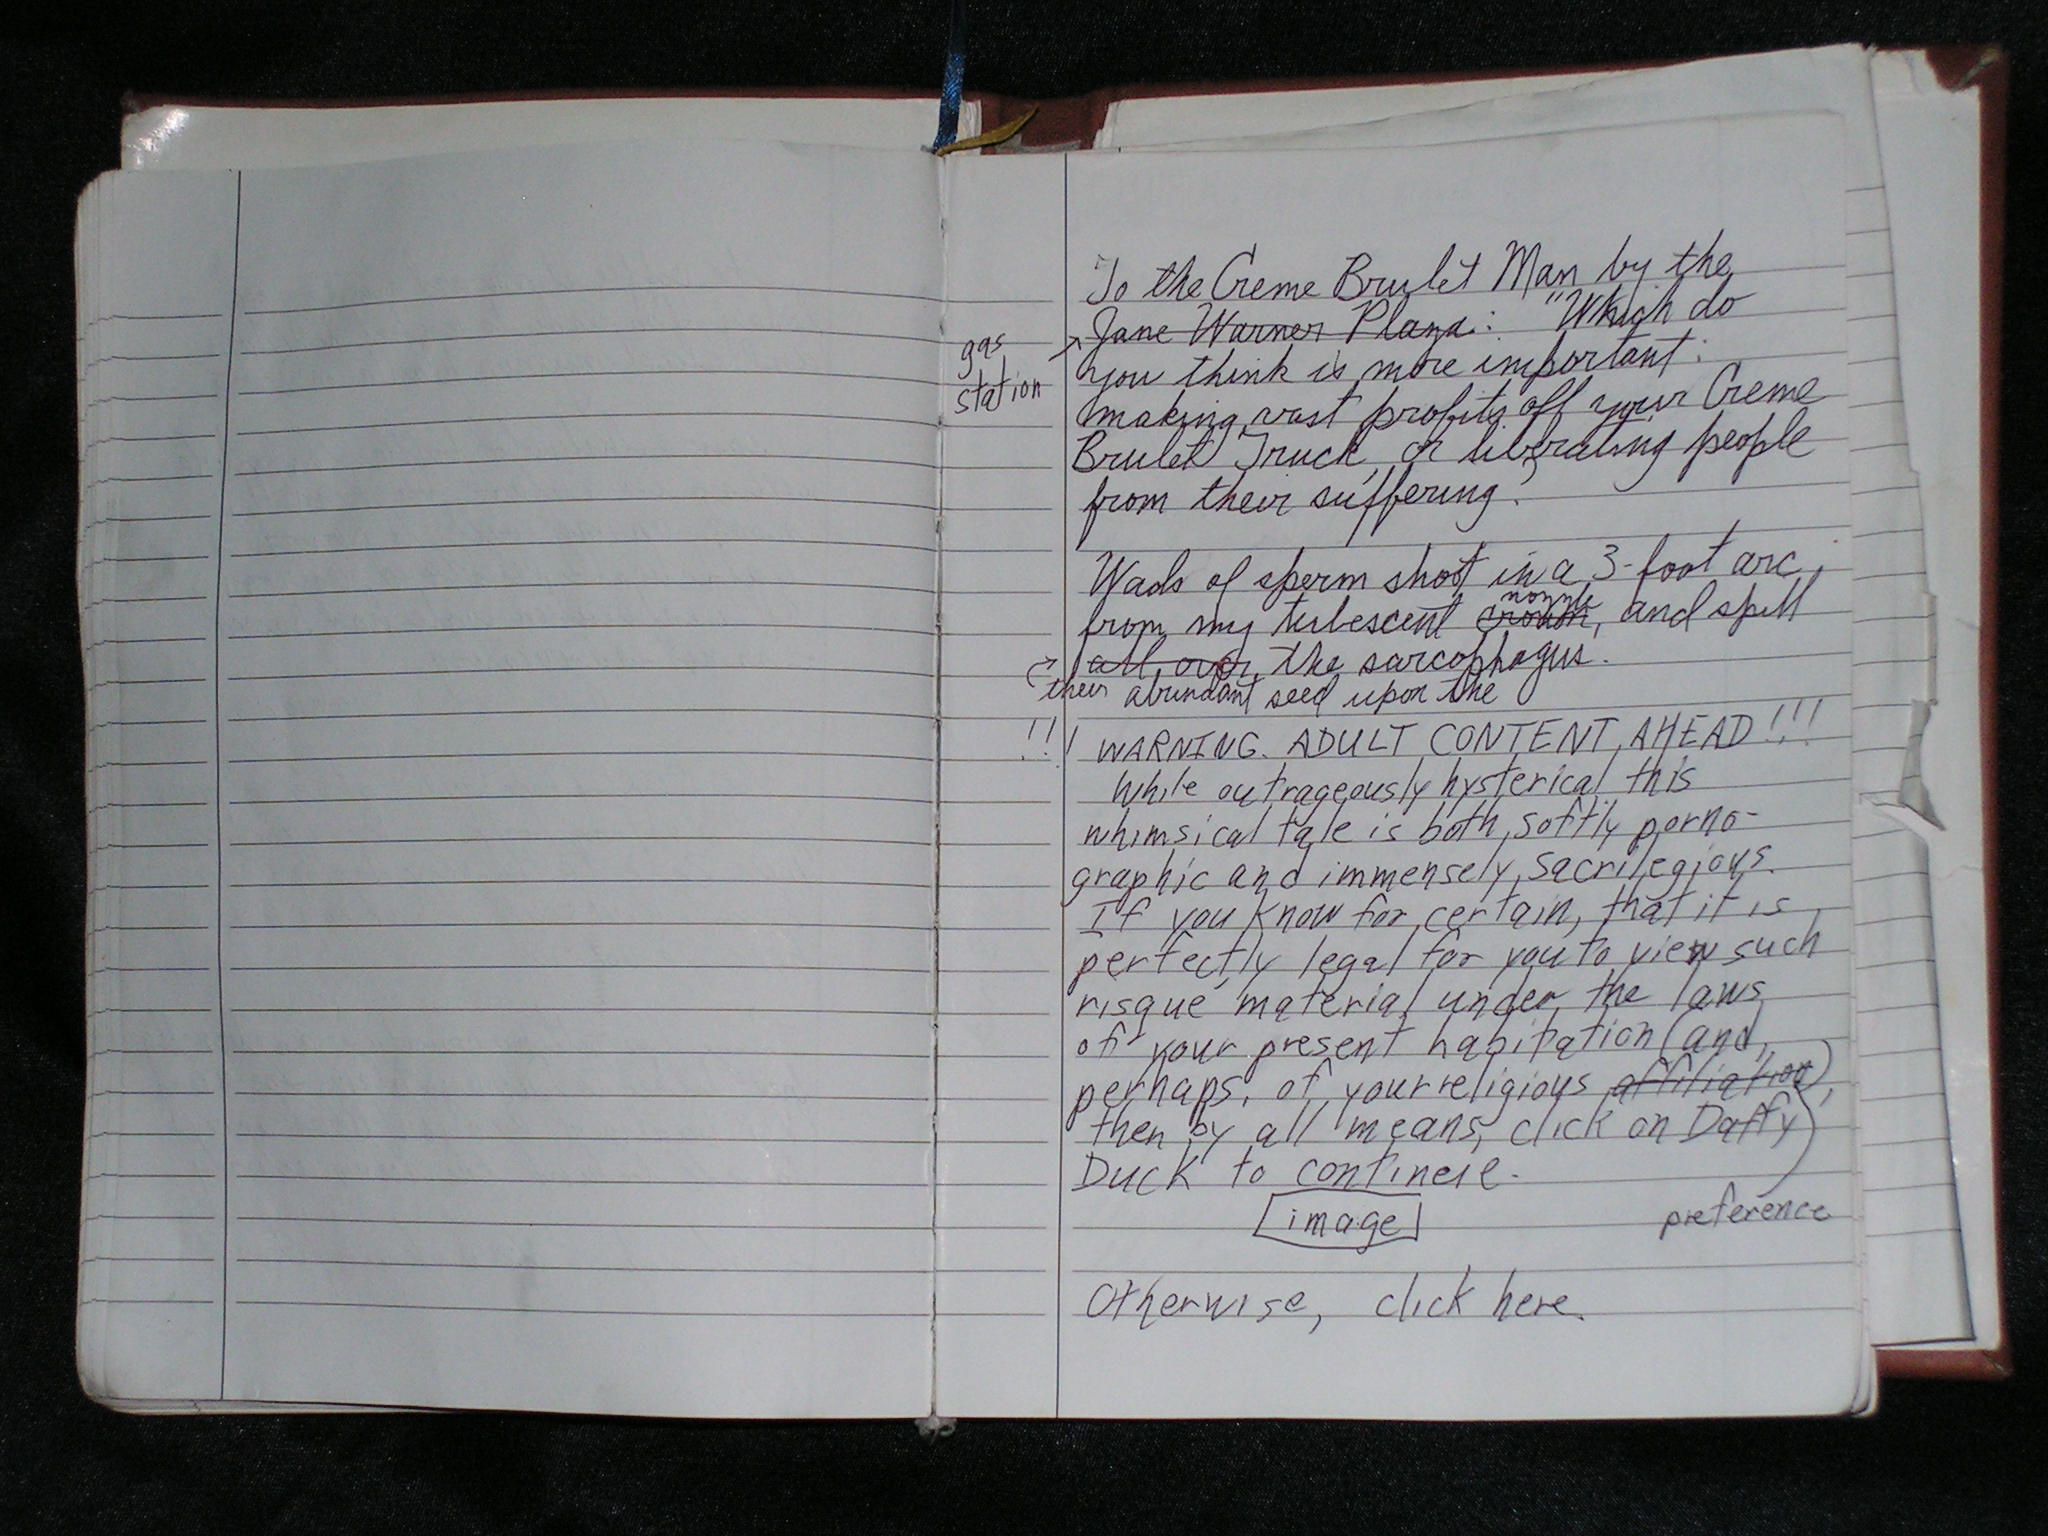 To the Creme Brulet Man by the
gas
station
Jane Warner Plaza: "Which do
you think is more important:
making vast profits off your Creme
Brulet Truck, or liberating people
from their suffering?
Wads of sperm shoot in a 3-foot arc
nozzle
from my turbescent and spill
all over the sarcophagus.
their abundant seed upon the
!!! WARNING. ADULT CONTENT AHEAD!!!
While outrageously hysterical this
whimsical tale is both softly porno-
graphic and immensely sacrilegious.
If you know for certain, that it is
perfectly legal for you to view such
risqué material under the laws
of your present habitation (and,
perhaps, of your religious affiliation),
then by all means, click on Daffy
Duck to continue.
image
preference
Otherwise, click here.